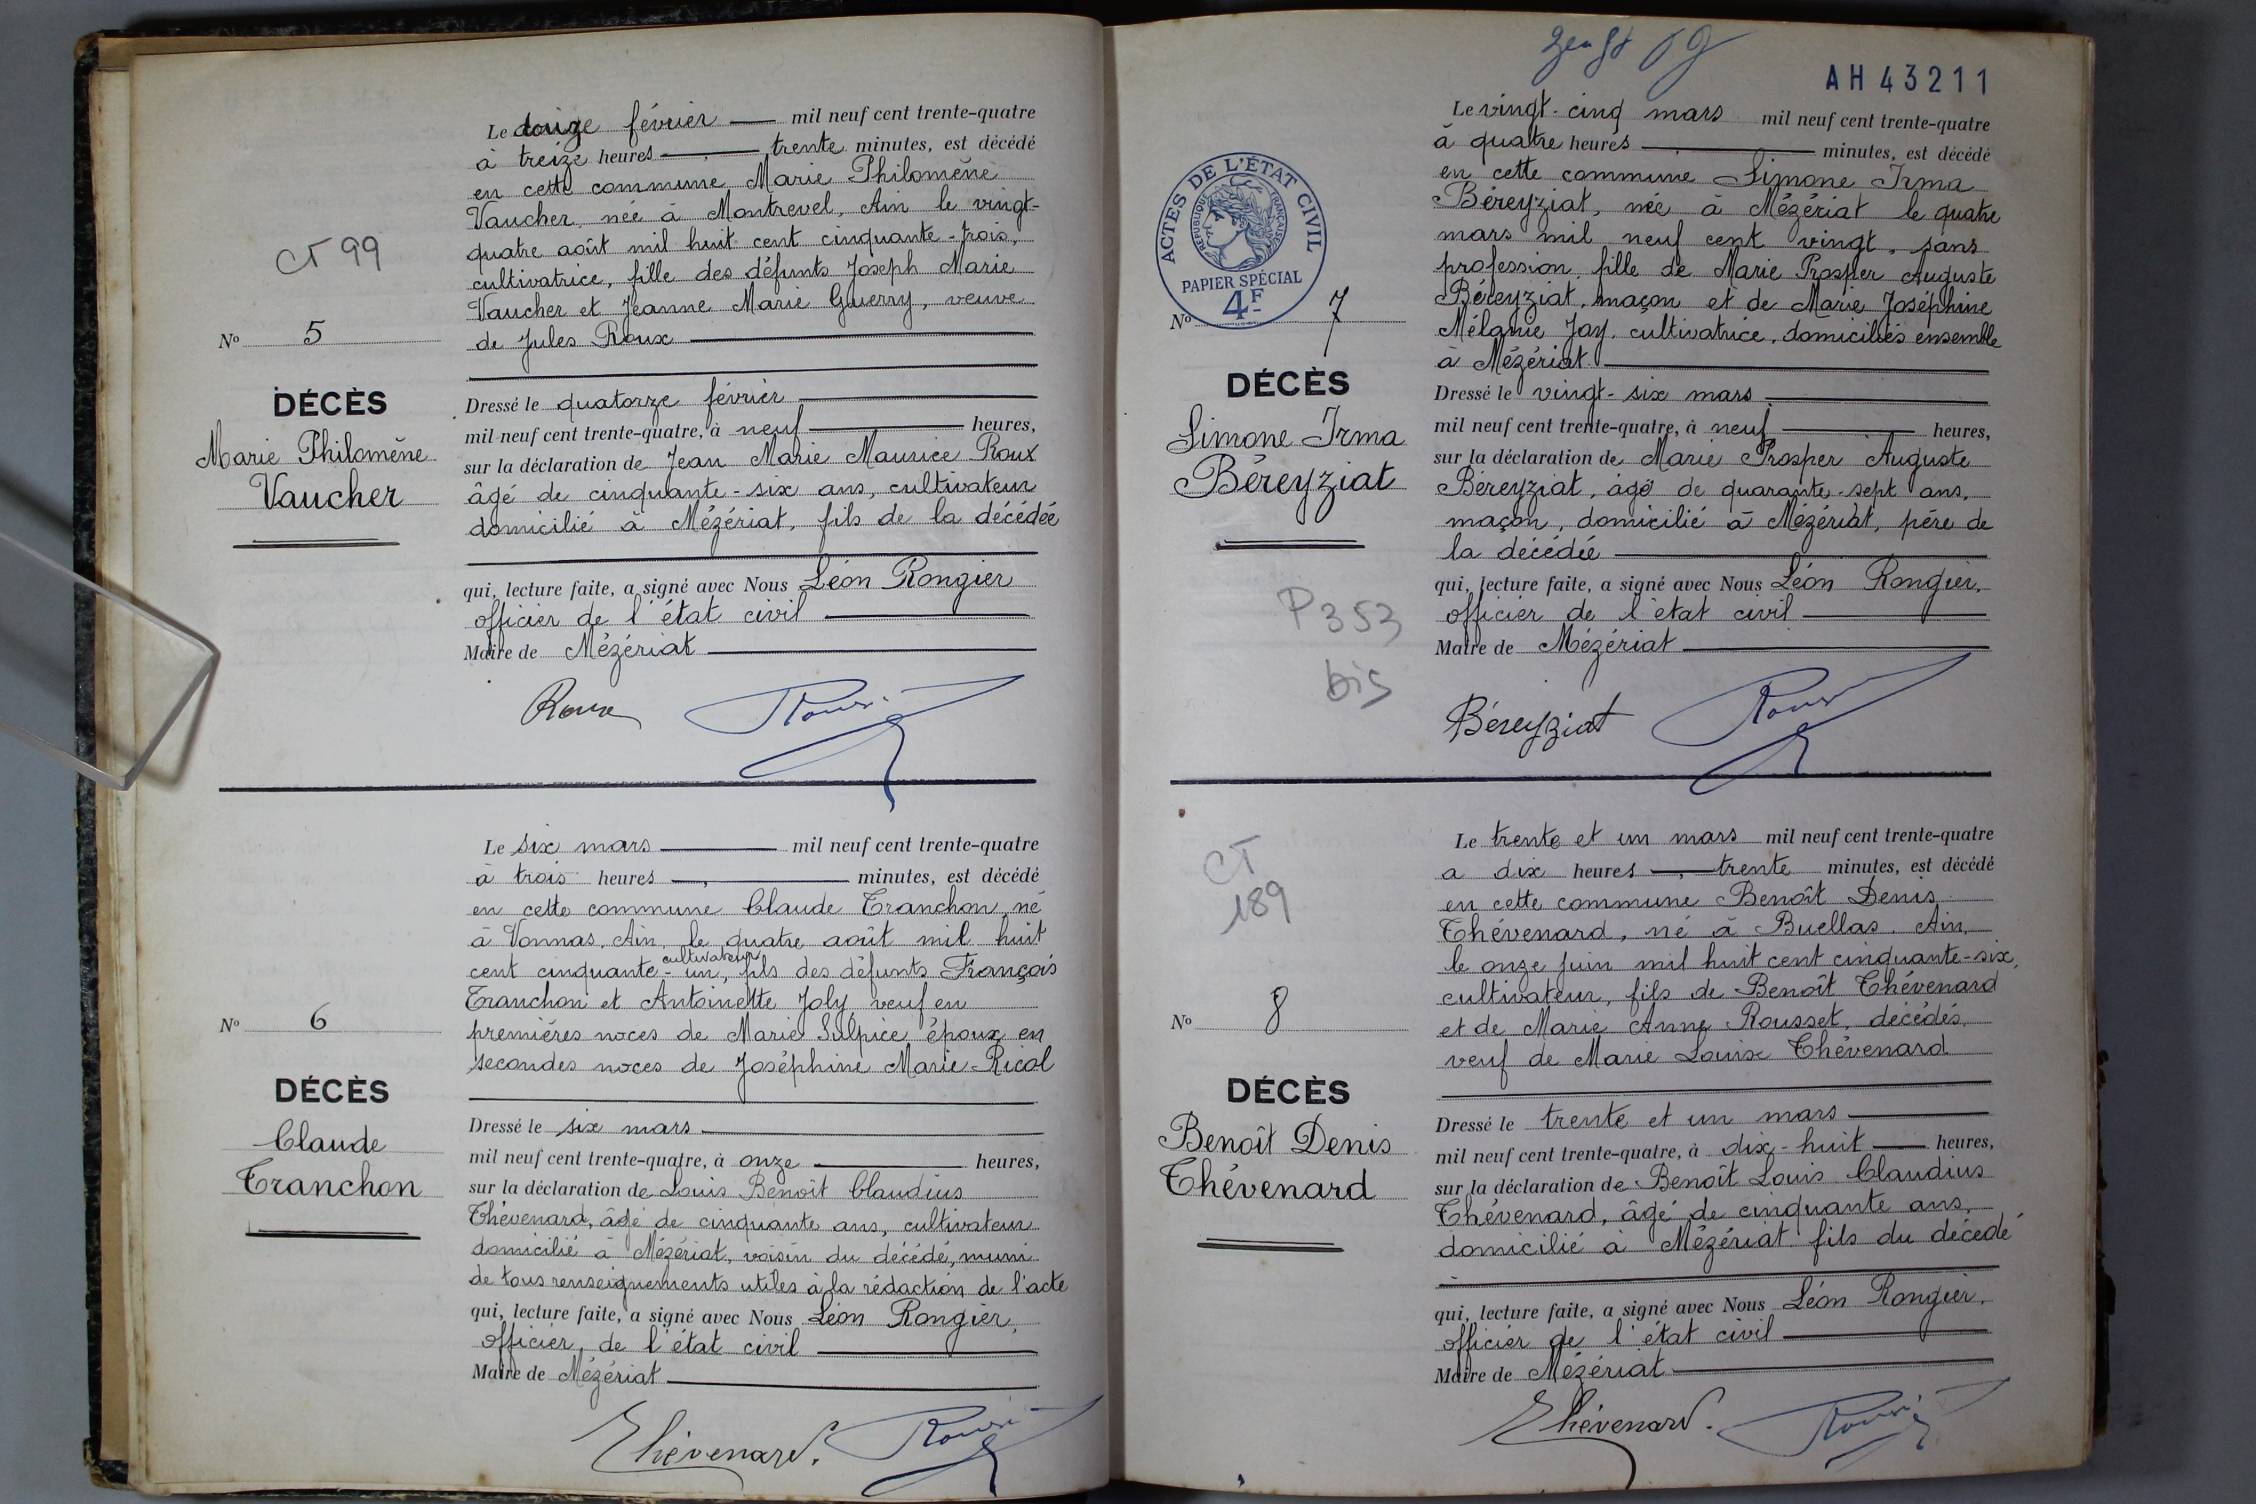 CT 99
Nº 5
DÉCÈS
Marie Philomène
Vaucher
Le février mil neuf cent trente-quatre
à treize heures, trente minutes, est décédé
en cette commune Marie Philomène
Vaucher, née à Montrevel, Ain le vingt-
quatre août mil huit cent cinquante-trois,
cultivatrice, fille des défunts Joseph Marie
Vaucher et Jeanne Marie Guerry, veuve
de Jules Roux
Dressé le quatorze février
mil neuf cent trente-quatre, à neuf heures,
sur la déclaration de Jean Marie Maurice Roux
âgé de cinquante-six ans, cultivateur
domicilié à Mézériat, fils de la décédée
qui, lecture faite, a signé avec Nous Léon Rongier
officier de l'état civil
Maire de Mézériat
Roux
Nº 6
DÉCÈS
Claude
Tranchon
Le six mars mil neuf cent trente-quatre
à trois heures, minutes, est décédé
en cette commune Claude Tranchon, né
à Vonnas, Ain, le quatre août mil huit
cultivateur
cent cinquante-un, fils des défunts François
Tranchon et Antoinette Joly, veuf en
premières noces de Marie Sulpice époux en
secondes noces de Joséphine Marie Ricol
Dressé le six mars
mil neuf cent trente-quatre, à onze heures,
sur la déclaration de Louis Benoît Claudius
Thévenard, âgé de cinquante ans, cultivateur
domicilié à Mézériat, voisin du décédé, muni
de tous renseignements utiles à la rédaction de l'acte
qui, lecture faite, a signé avec Nous Léon Rongier,
officier de l'état civil
Maire de Mézériat
Thévenard.
AH 43211
ACTES DE L'ÉTAT CIVIL
RÉPUBLIQUE FRANÇAISE
PAPIER SPÉCIAL
4F
Nº 7
DÉCÈS
Simone Irma
Béreyziat
P 353
bis
Le vingt-cinq mars mil neuf cent trente-quatre
à quatre heures minutes, est décédé
en cette commune Simone Irma
Béreyziat, née à Mézériat le quatre
mars mil neuf cent vingt, sans
profession, fille de Marie Prosper Auguste
Béreyziat, maçon et de Marie Joséphine
Mélanie Jay, cultivatrice, domiciliés ensemble
à Mézériat
Dressé le vingt-six mars
mil neuf cent trente-quatre, à neuf heures,
sur la déclaration de Marie Prosper Auguste
Béreyziat, âgé de quarante-sept ans,
maçon, domicilié à Mézériat, père de
la décédée
qui, lecture faite, a signé avec Nous Léon Rongier,
officier de l'état civil
Maire de Mézériat
Béreyziat
CT
189
Nº 8
DÉCÈS
Benoît Denis
Thévenard
Le trente et un mars mil neuf cent trente-quatre
à dix heures, trente minutes, est décédé
en cette commune Benoît Denis
Thévenard, né à Buellas, Ain,
le onze juin mil huit cent cinquante-six,
cultivateur, fils de Benoît Thévenard
et de Marie Anne Rousset, décédés,
veuf de Marie Louise Thévenard
Dressé le trente et un mars
mil neuf cent trente-quatre, à dix-huit heures,
sur la déclaration de Benoît Louis Claudius
Thévenard, âgé de cinquante ans,
domicilié à Mézériat fils du décédé
qui, lecture faite, a signé avec Nous Léon Rongier,
officier de l'état civil
Maire de Mézériat
Thévenard.